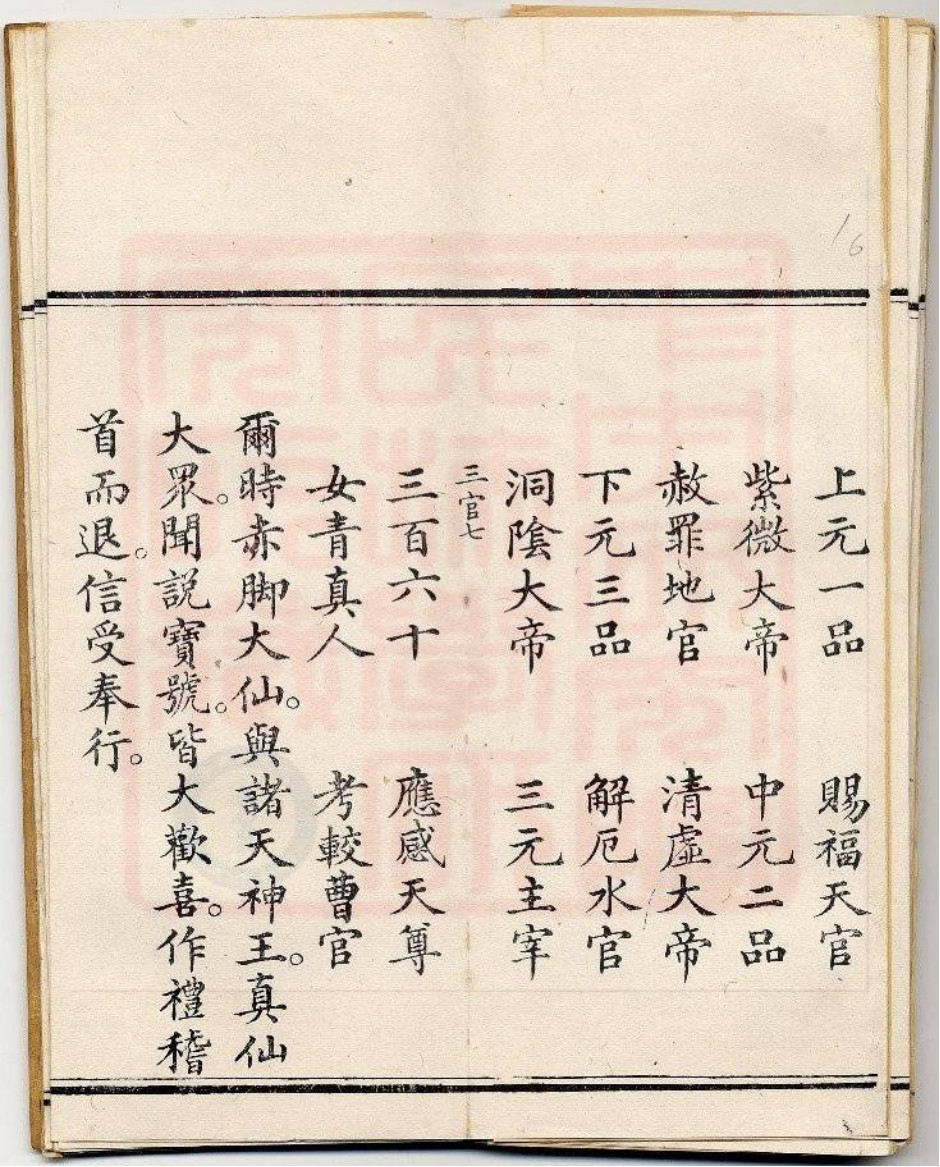 上元一品　賜福天官
紫微大帝　中元二品
赦罪地官　清虛大帝
下元三品　解厄水官
洞陰大帝　三元主宰
三官七
三百六十　應感天尊
女青真人　考較曹官
爾時赤脚大仙。與諸天神王。真仙
大眾。聞説寶號。皆大歡喜。作禮稽
首而退。信受奉行。
16